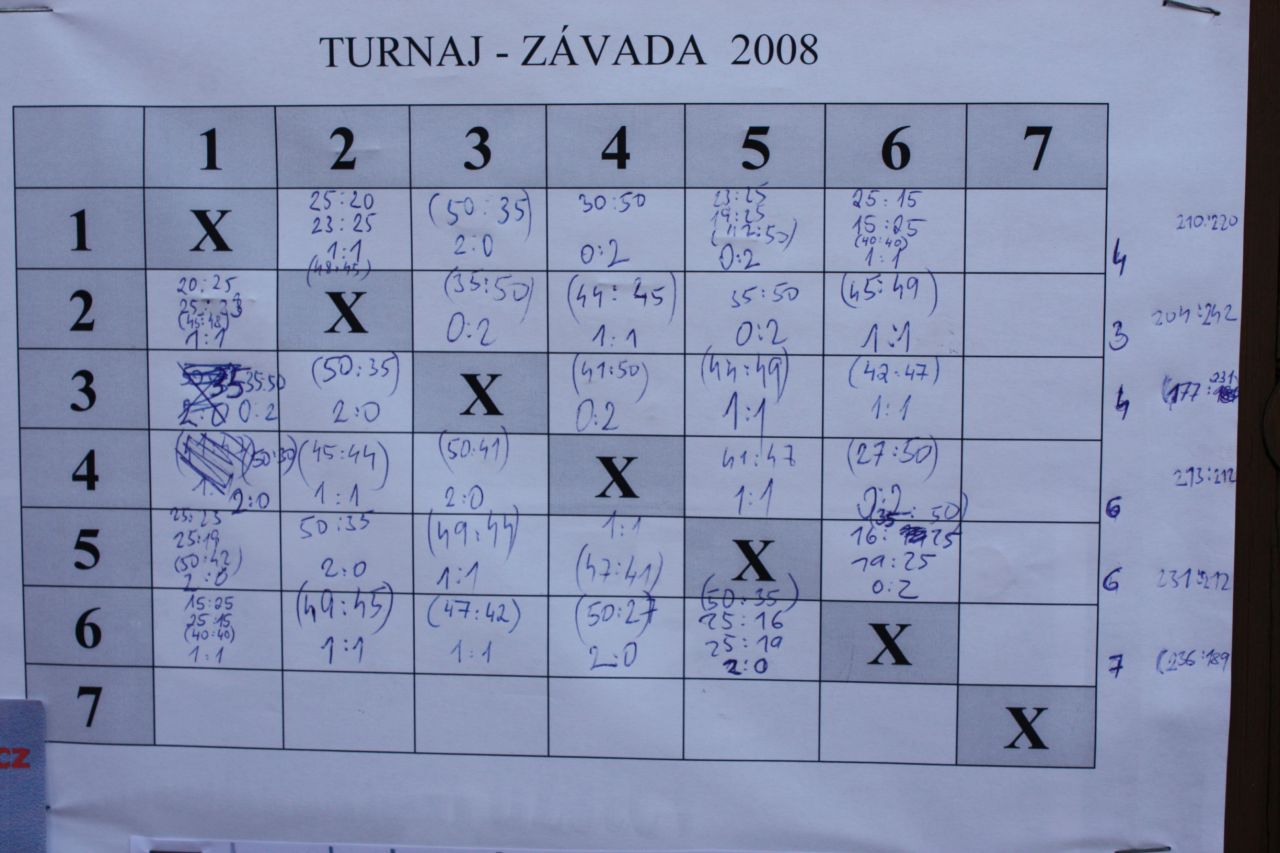 TURNAJ - ZÁVADA 2008
1 2 3 4 5 6 7
1 X 25:20 (50:35) 30:50 23:25 25:15
23:25 19:25 15:25
(42:50) (40:40)
1:1 2:0 0:2 0:2 1:1 4 210:220
(48:45)
2 20:25 X (35:50) (44:45) 35:50 (45:49)
25:23
(45:48)
1:1 0:2 1:1 0:2 1:1 3 204:242
3 35 35:50 (50:35) X (41:50) (44:49) (42:47)
2:0 0:2 2:0 0:2 1:1 1:1 4 (177:231
4 (50:30) (45:44) (50:41) X 41:47 (27:50)
2:0 1:1 2:0 1:1 0:2 6 213:212
5 25:23 50:35 (49:44) 1:1 X (35:50)
25:19 16:25
(50:42) (47:41) 19:25
2:0 2:0 1:1 0:2 6 231:212
6 15:25 (49:45) (47:42) (50:27 (50:35) X
25:15 25:16
(40:40) 25:19
1:1 1:1 1:1 2:0 2:0 7 (236:189
7 X
cz